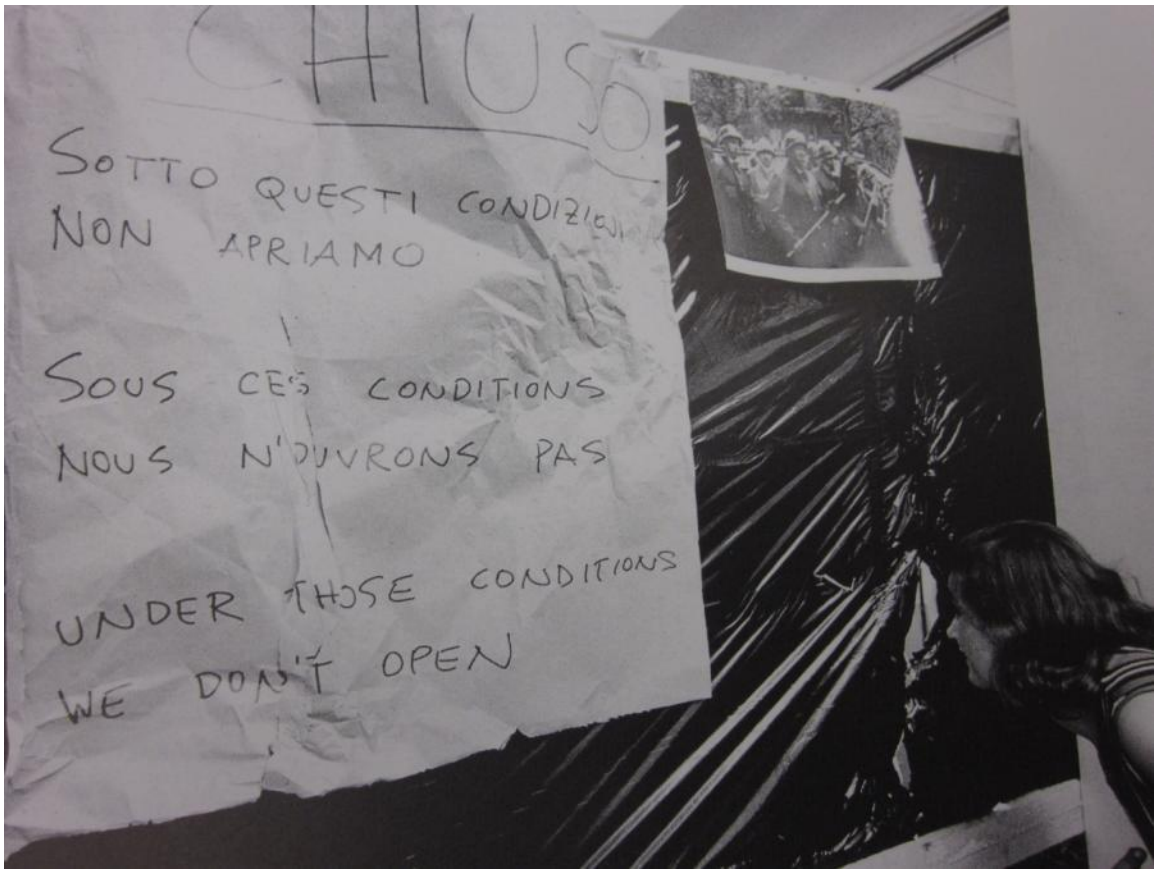 CHIUSO
SOTTO QUESTI CONDIZIONI
NON APRIAMO
SOUS CES CONDITIONS
NOUS N'OUVRONS PAS
UNDER THOSE CONDITIONS
WE DON'T OPEN